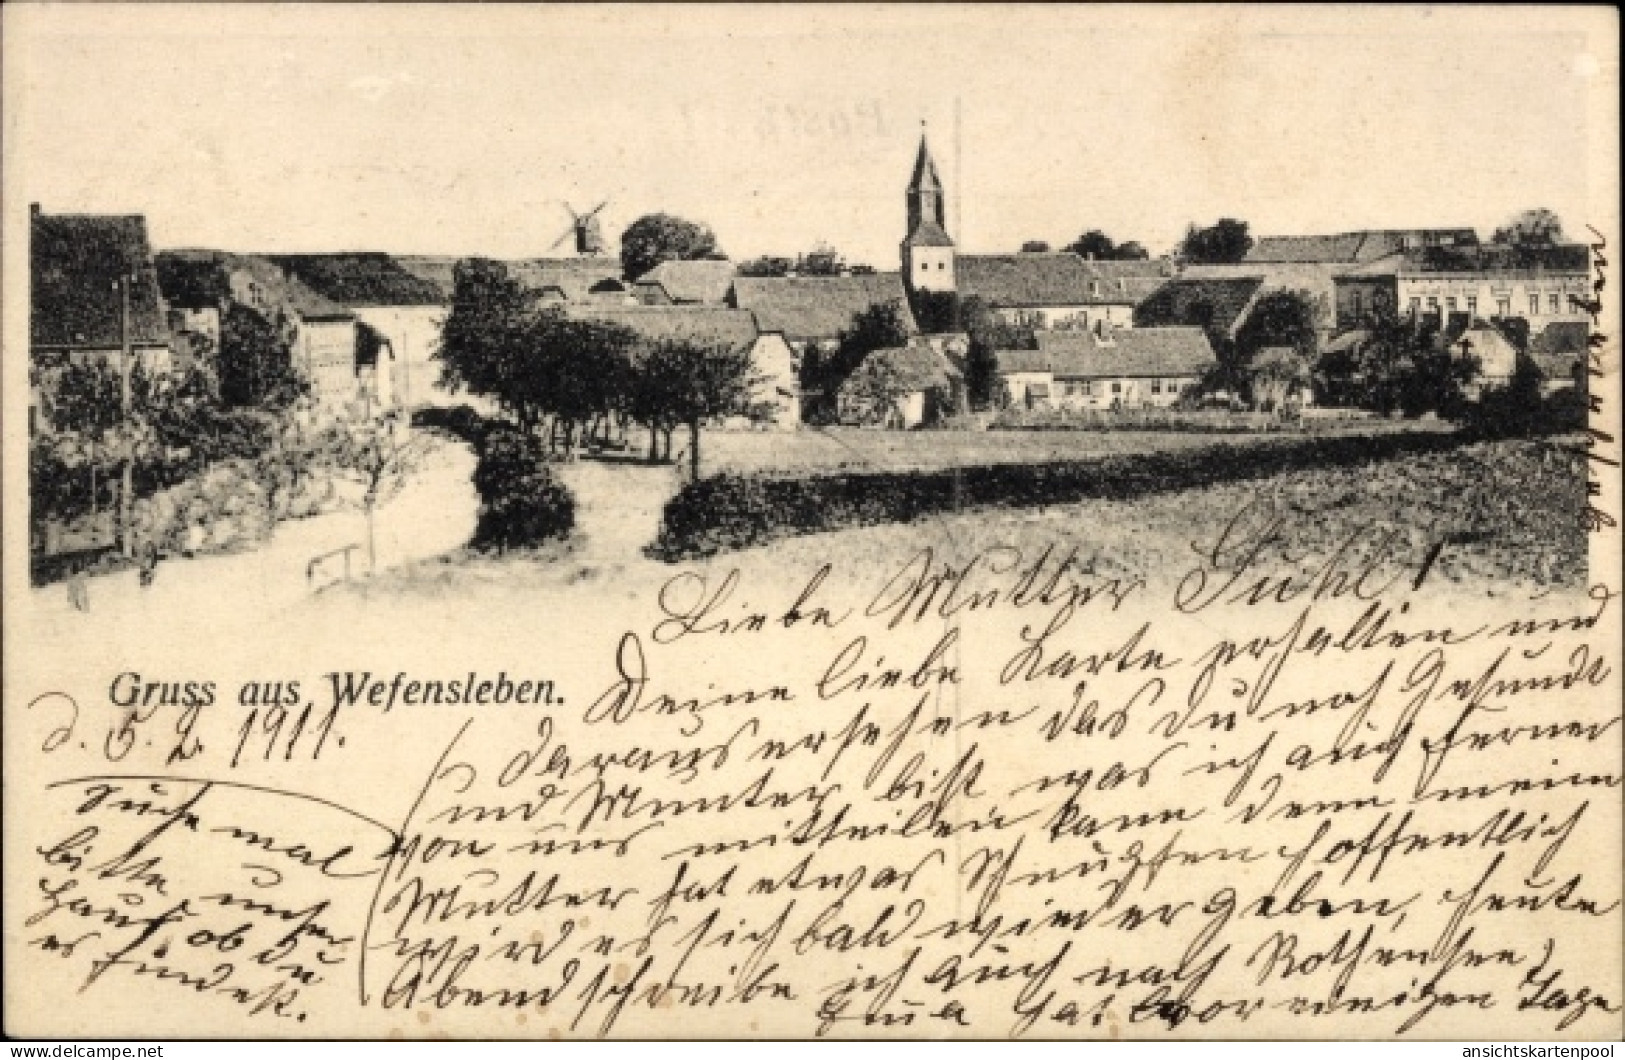 Gruss aus Wefensleben.
d. 5. 2. 1911.
Liebe Mutter Guhl!
Deine liebe Karte erhalten und
daraus ersehen das du noch Gesundt
und Munter bist was ich auch ferner
von uns mitteilen kann denn meine
Mutter hat etwas Schnupfen hoffentlich
wird es sich bald wieder geben, heute
Abend schreibe ich auch nach Rothensee,
hat vor einigen Tage
Suche mal
bitte unser
Haus ob du
es findest.
delcampe.net
ansichtskartenpool